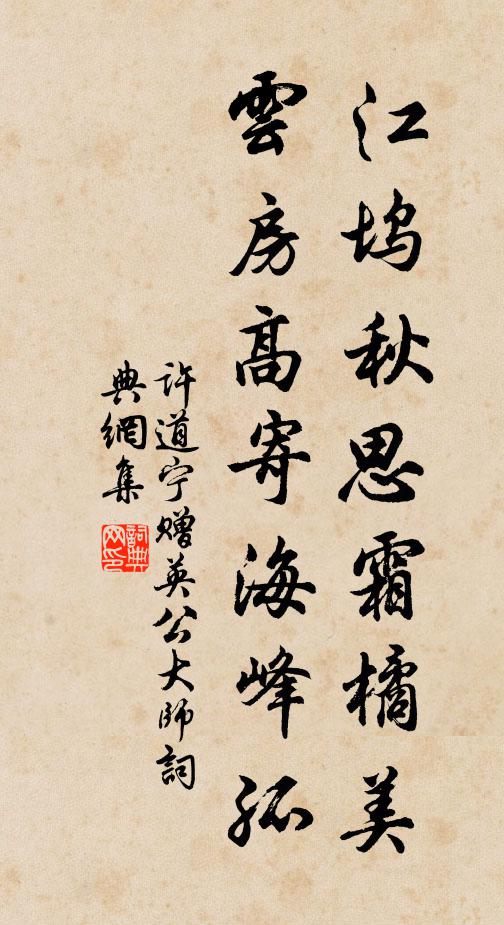 江坞秋思霜橘美
雲房高寄海峰孤
许道宁赠英公大师詞
典網集
詞典网印